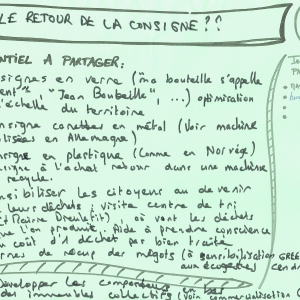 LE RETOUR DE LA CONSIGNE ??
NTIEL A PARTAGER:
signes en verre ("ma bouteille s'appelle
ent", "Jean Bouteille", ...) optimisation
l'échelle du territoire
nsigne canettes en métal (Voir machine
ilisées en Allemagne)
nsigne en plastique (Comme en Norvège)
nsigne à l'achat retour dans une machine
recycle.
nsibiliser les citoyens au devenir
leurs déchets: visite centre de tri
, où vont les déchets
e l'on produit. Aide à prendre conscience
u coût d'1 déchet pas bien traité
rnes de récup des mégots (à sensibilisation GREE
aux écogestes cend
Développer les composteurs en bas
des immeubles collectifs (Voir commercialisation